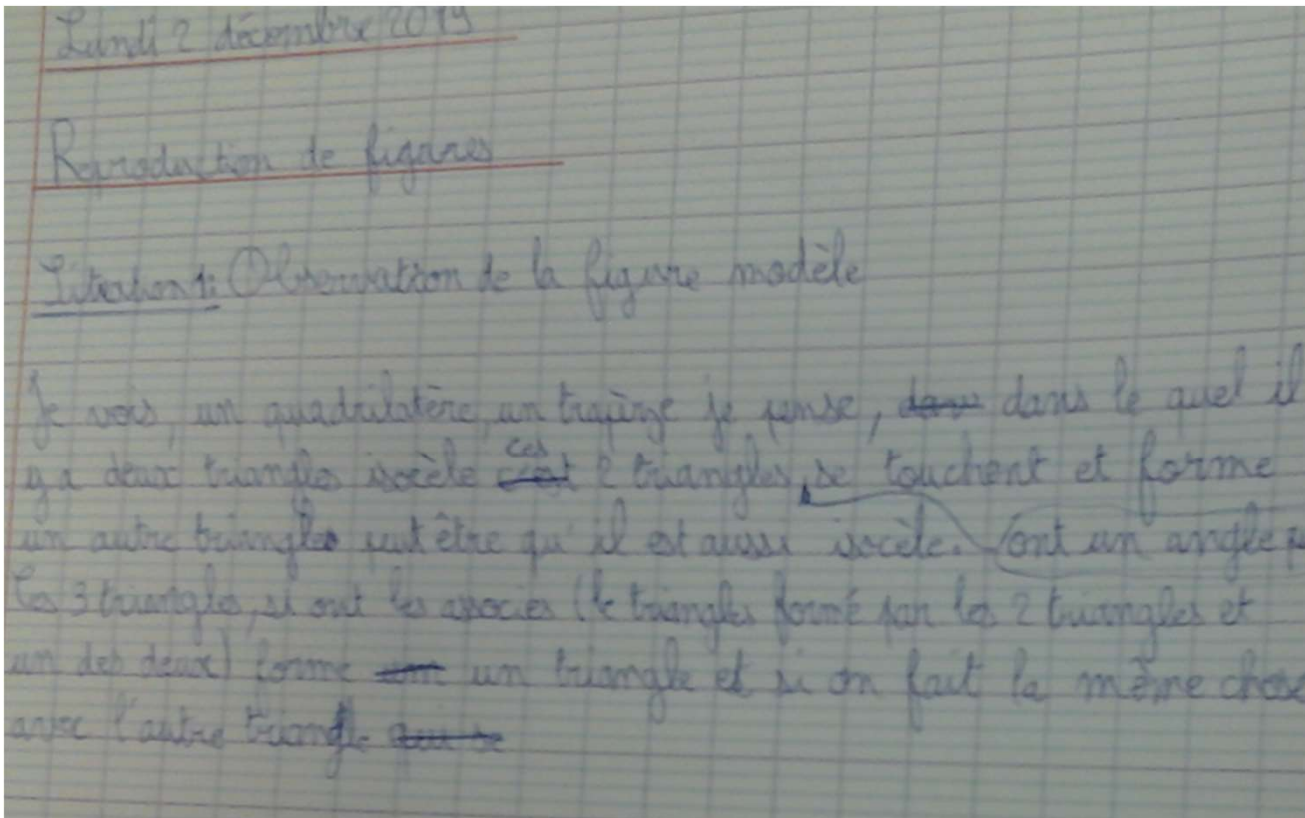 Lundi 2 décembre 2019
Reproduction de figures
Situation 1: Observation de la figure modèle
Je vois, un quadrilatère, un trapèze je pense, dans le quel il
y a deux triangles isocèle ces 2 triangles, se touchent et forme
un autre triangle peut être qu'il est aussi isocèle. ont un angle
Ces 3 triangles, si ont les associes (le triangles formé par les 2 triangles et
un des deux) forme un triangle et si on fait la même chose
avec l'autre triangle